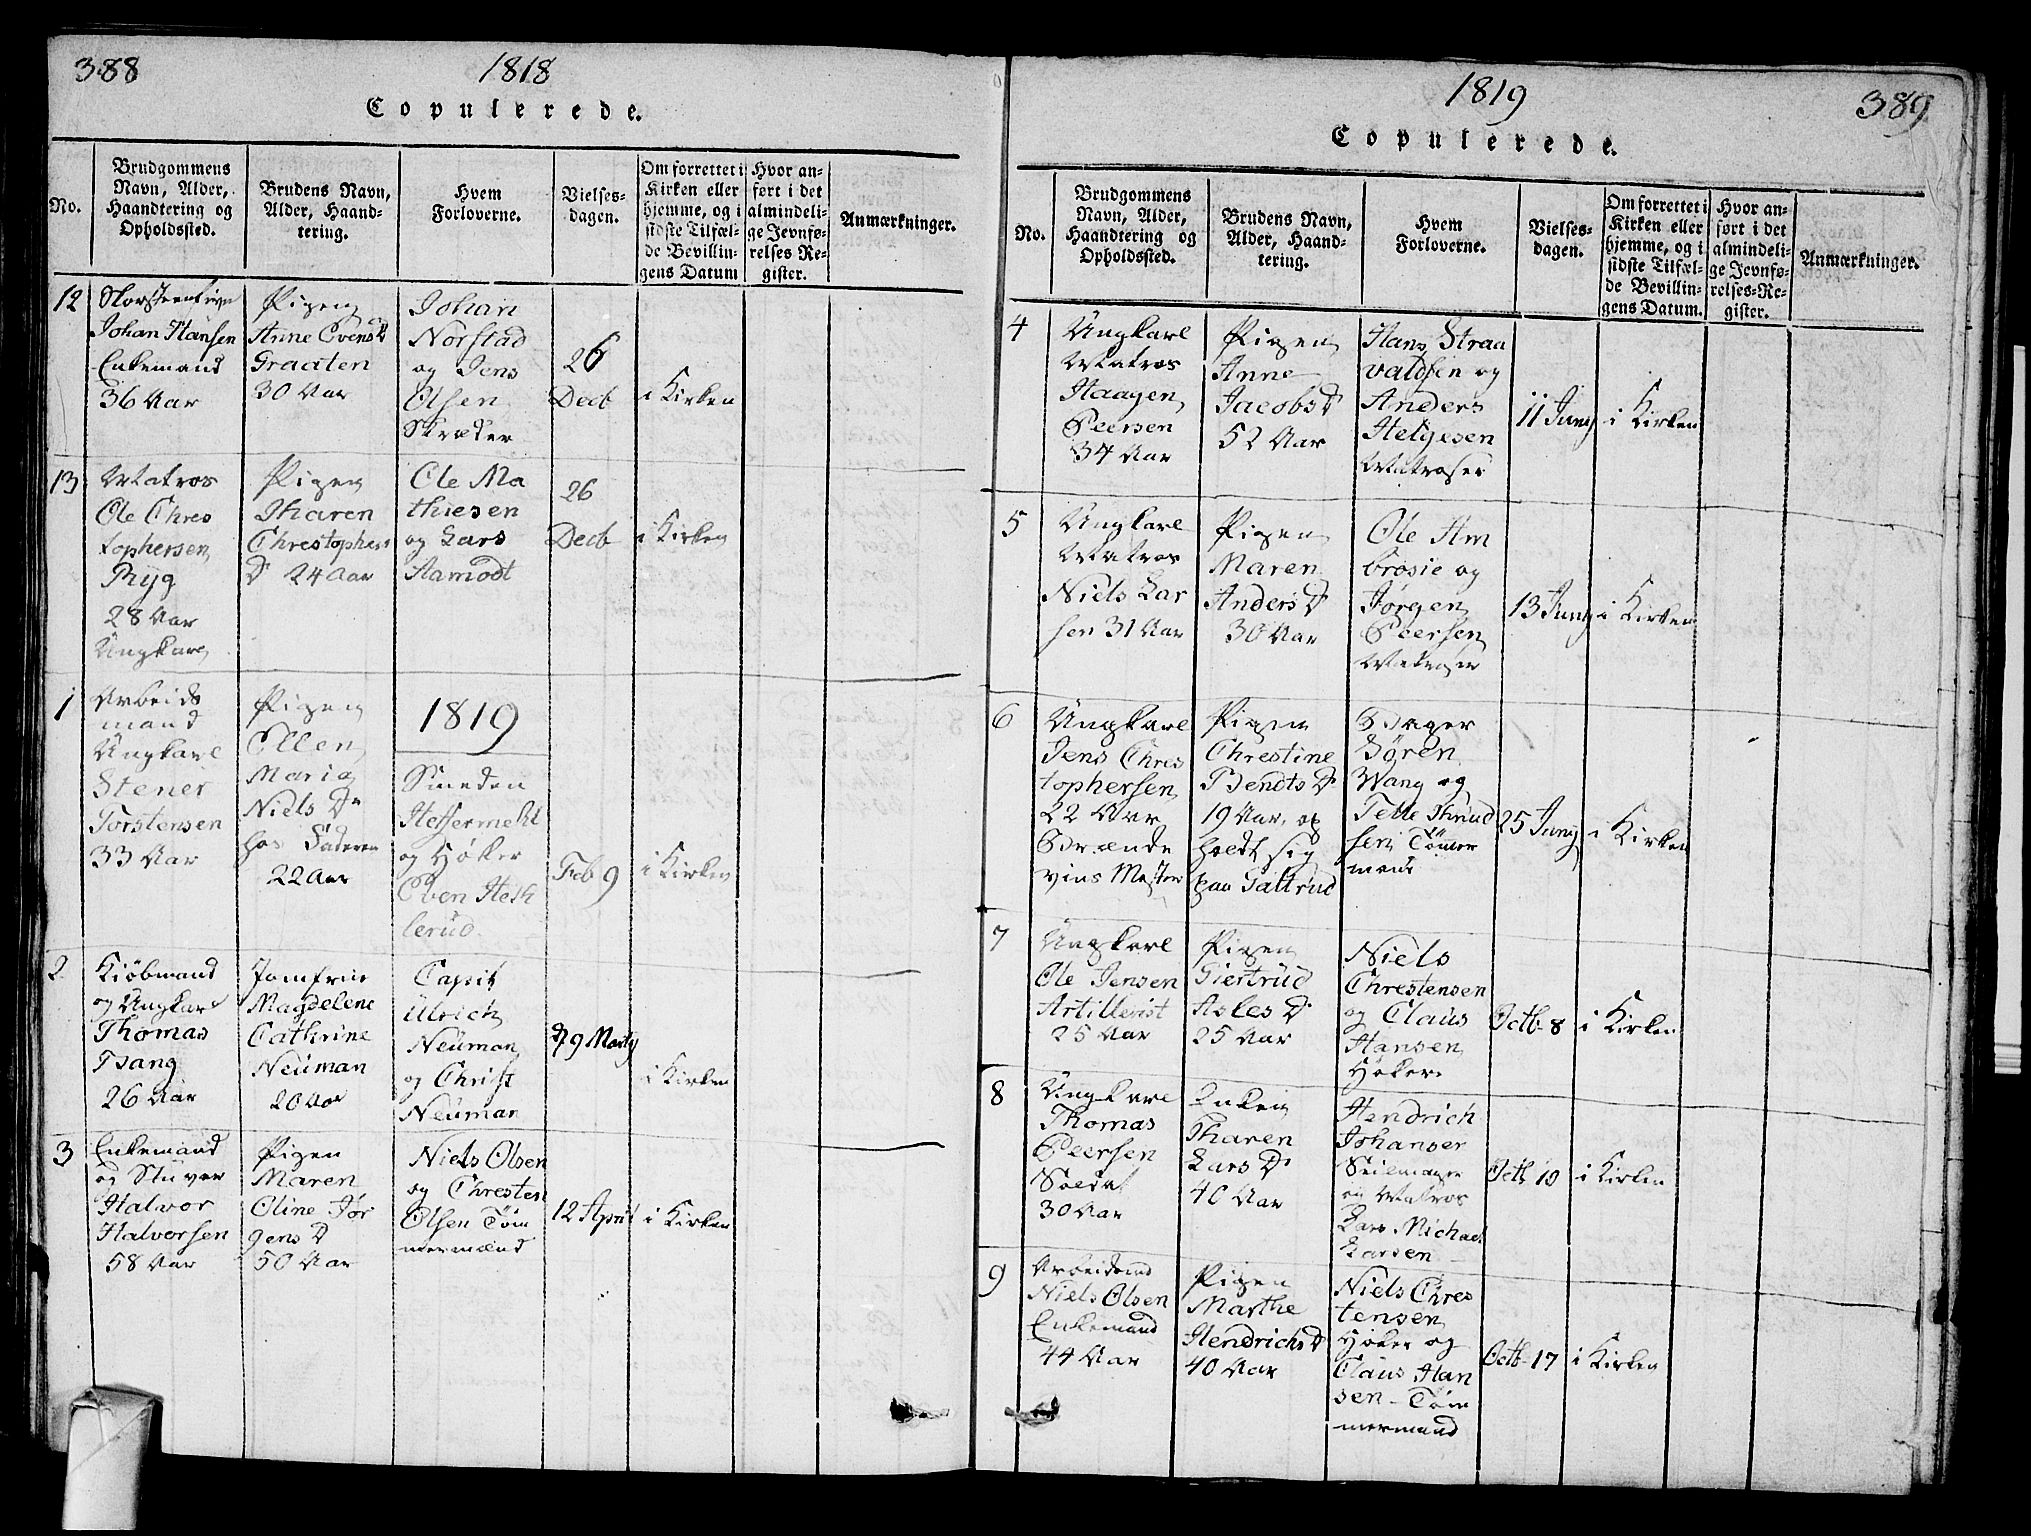 388
1818
Copulerede.
No.
Brudgommens
Navn, Alder,
Haandtering og
Opholdssted.
Brudens Navn,
Alder, Haand-
tering.
Hvem
Forloverne.
Vielses-
dagen.
Om forrettet i
Kirken eller
hjemme, og i
sidste Tilfæl-
de Bevillin-
gens Datum
Hvor an-
ført i det
almindeli-
ge Jevnfø-
relses Re-
gister.
Anmærkninger.
12
Johan Hansen
Enkemand
36 Aar
Pigen
Anne Evens D
Graaten
30 Aar
Johan
Norstad
og Jens
Olsen
Skræder
26
Decb
i Kirken
13
Matros
Ole Chres
tophersen
Ryg
28 Aar
Ungkarl
Pigen
Tharen
Christophers
D 24 Aar
Ole Ma
thiesen
og Lars
Aamodt
26
Decb
i Kirken
1
Arbeids
mand
Ungkarl
Stener
Torstensen
33 Aar
Pigen
Ellen
Maria
Niels Dr
hos Faderen
22 Aar
1819
Smeden
Heffermehl
og Høker
Even Heth
lerud
Feb 9
i Kirken
2
Kiøbmand
og Ungkarl
Thomas
Bang
26 Aar
Jomfrue
Magdelene
Cathrine
Neuman
20 Aar
Capit
Ulrich
Neuman
og Christ
Neuman
9 Marty
i Kirken
3
Enkemand
og Stuver
Halvor
Halvorsen
58 Aar
Pigen
Maren
Oline Jør
gens D
50 Aar
Niels Olsen
og Chresten
Olsen Tøm
mermænd
12 April
i Kirken
1819
389
Copulerede.
No.
Brudgommens
Navn, Alder,
Haandtering og
Opholdssted.
Brudens Navn,
Alder, Haand-
tering.
Hvem
Forloverne.
Vielses-
dagen.
Om forrettet i
Kirken eller
hjemme, og i
sidste Tilfæl-
de Bevillin-
gens Datum.
Hvor an-
ført i det
almindeli-
ge Jevnfø-
relses-Re-
gister.
Anmærkninger.
4
Ungkarl
Matros
Haagen
Peersen
34 Aar
Pigen
Anne
Jacobs D
52 Aar
Hans Straa
valdsen og
Anders
Helgesen
Matroser
11 Juny
i Kirken
5
Ungkarl
Matros
Niels Lar
sen 31 Aar
Pigen
Maren
Anders D
30 Aar
Ole Am
brosie og
Jørgen
Peersen
Matroser
13 Juny
i Kirken
6
Ungkarl
Jens Chris
tophersen
22 Aar
Brænde
vins Mester
Pigen
Chrestine
Bendts D
19 Aar, op
holdt sig
paa Galtrud
Bager
Søren
Wang og
Telle Knud
sen Tømmer
mand
25 Juny
i Kirken
7
Ungkarl
Ole Jensen
Artillerist
25 Aar
Pigen
Giertrud
Asles D
25 Aar
Niels
Chrestensen
og Claus
Hansen
Høker
Octb 8
i Kirken
8
Ungkarl
Thomas
Peersen
30 Aar
Enken
Tharen
Lars D
40 Aar
Hendrich
Johanser
Seilmager
og Matros
Lars Michael
Larsen
Octb 10
i Kirken
9
Arbeidsmd
Niels Olsen
Enkemand
44 Aar
Pigen
Marthe
Hendrichs D
40 Aar
Niels Chres
tensen
Høker og
Claus Han
sen Tøm
mermand
Octb 17
i Kirken